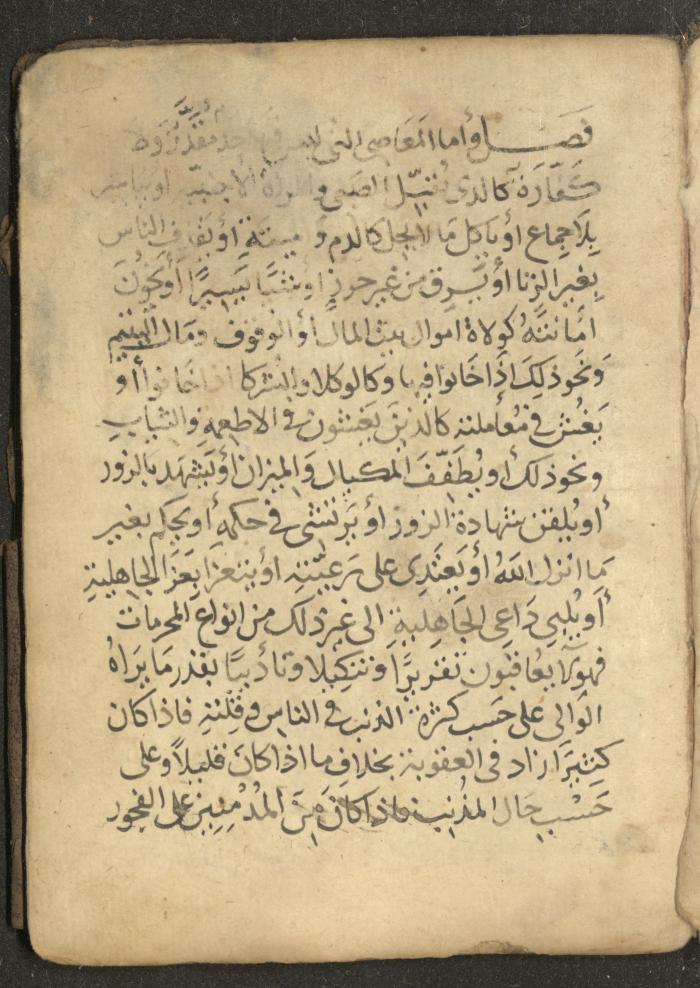 فصل وأما المعاصي التي ليس فيها حد مقدر ولا
كفارة كالذي يقبل الصبي والمرأة الأجنبية او يباشر
بلا جماع او ياكل ما لا يحل كالدم والميتة او يقذف الناس
بغير الزنا أو يسرق من غير حرز او شيئا يسيرا أو يخون
امانته كولاة اموال بيت المال أو الوقوف ومال اليتيم
ونحو ذلك اذا خانوا فيها وكالوكلا والشركا اذا خانوا أو
يغش في معاملته كالذين يغشون في الاطعمة والثياب
ونحو ذلك او يطفف المكيال والميزان أو يشهد بالزور
أو يلقن شهادة الزور او يرتشي في حكمه أو يحكم بغير
ما انزل الله أو يعتدي على رعيته أو يتعزا بعزا الجاهلية
أو يلبي داعي الجاهلية الى غير ذلك من انواع المحرمات
فهولا يعاقبون تعزيرا وتنكيلا وتأديبا بقدر ما يراه
الوالي على حسب كثرة الذنب في الناس وقلته فاذا كان
كثيرا زاد في العقوبة بخلاف ما اذا كان قليلا وعلى
حسب حال المذنب فاذا كان من المدمنين على الفجور